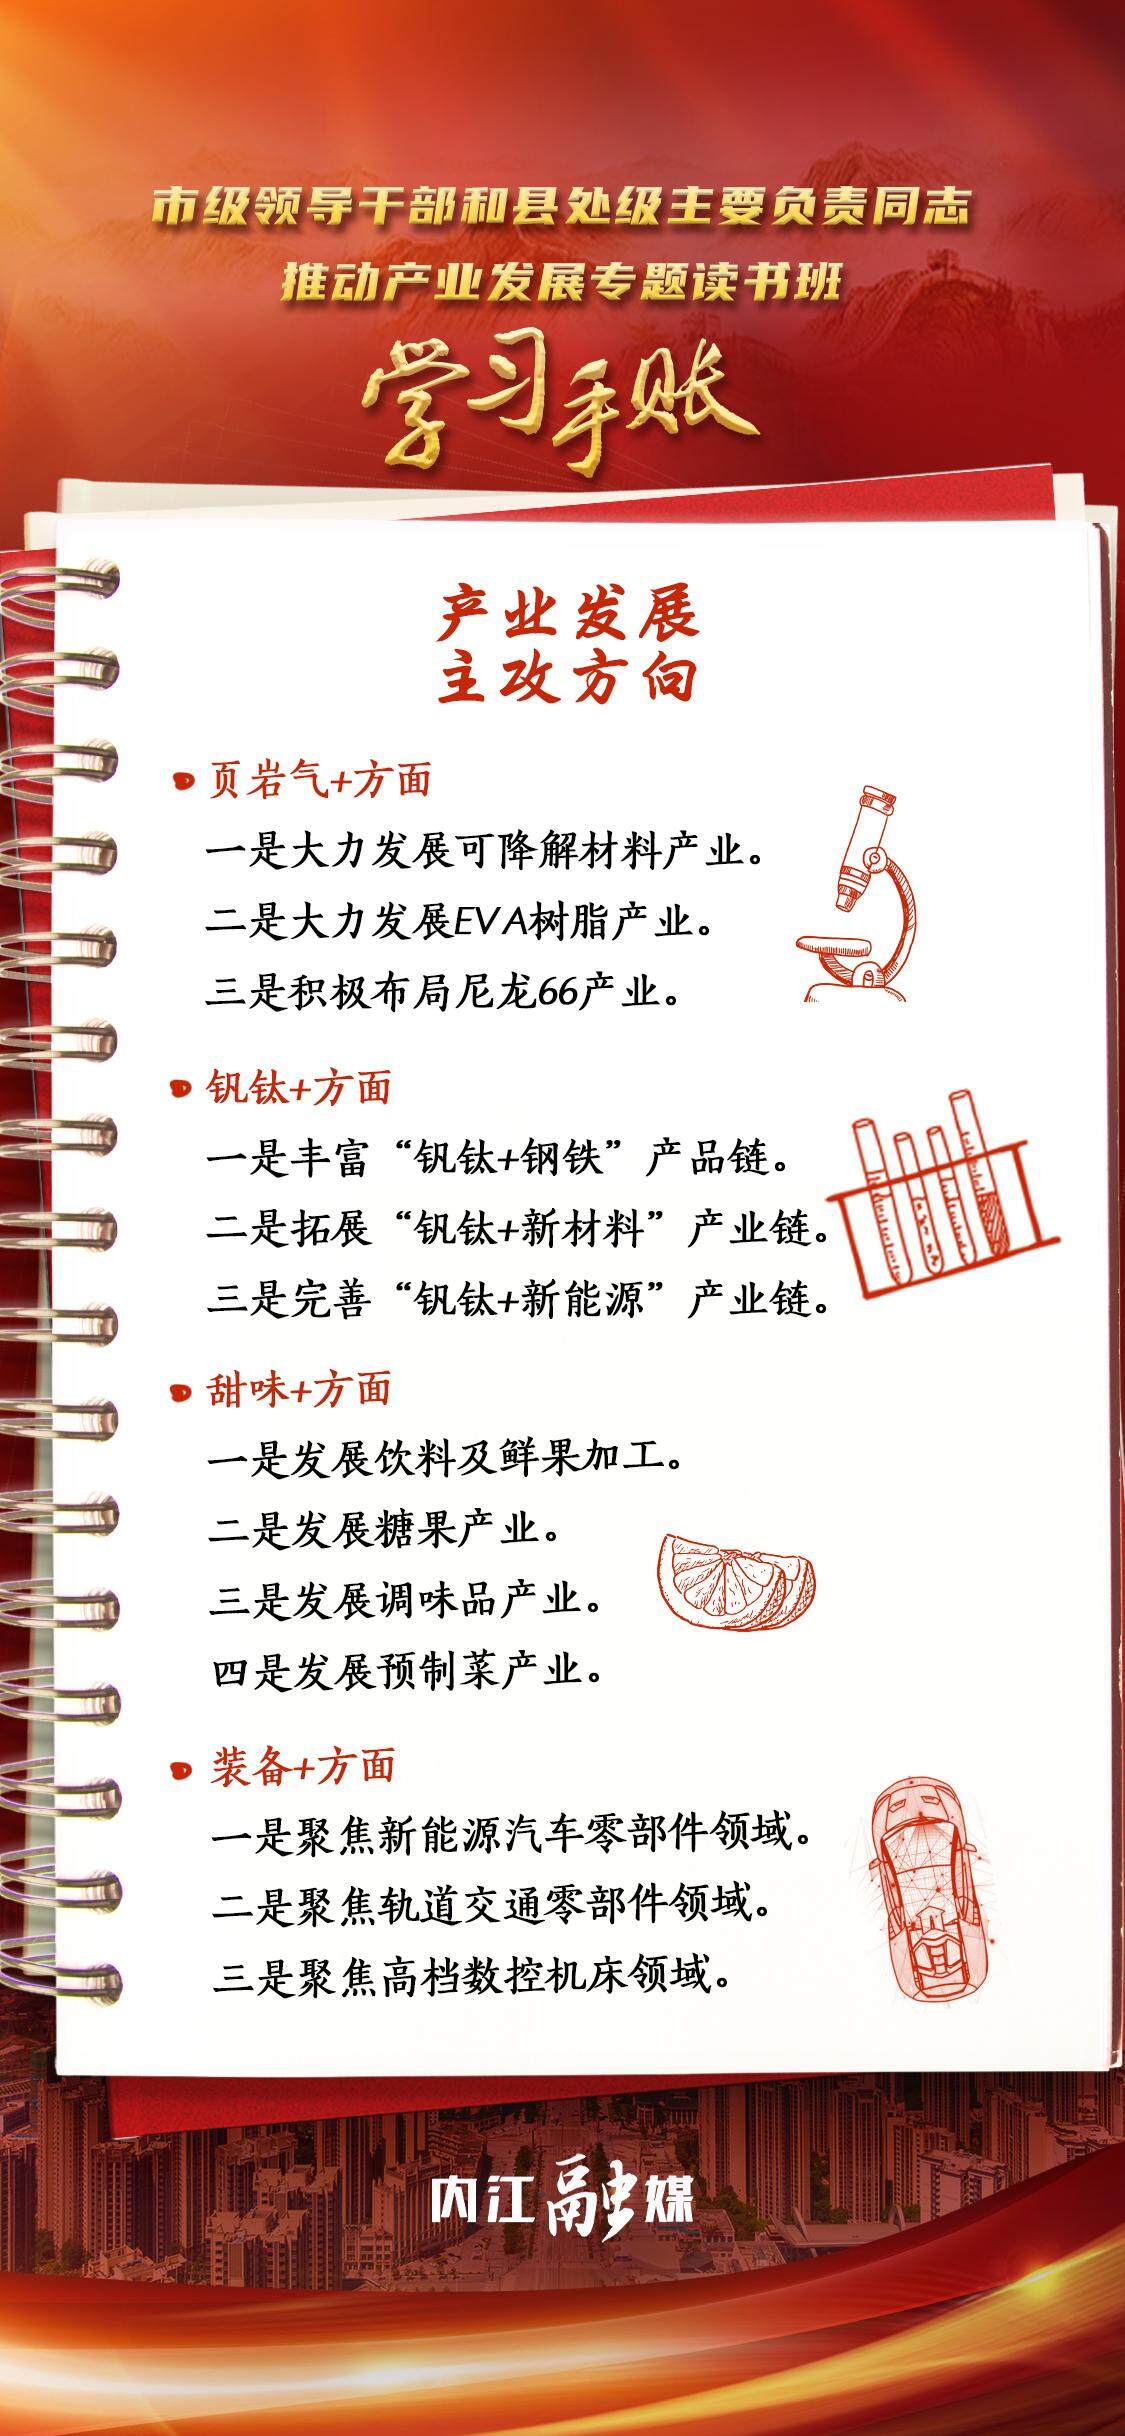 市级领导干部和县处级主要负责同志
推动产业发展专题读书班
学习手账
产业发展
主攻方向
页岩气+方面
一是大力发展可降解材料产业。
二是大力发展EVA树脂产业。
三是积极布局尼龙66产业。
钒钛+方面
一是丰富“钒钛+钢铁”产品链。
二是拓展“钒钛+新材料”产业链。
三是完善“钒钛+新能源”产业链。
甜味+方面
一是发展饮料及鲜果加工。
二是发展糖果产业。
三是发展调味品产业。
四是发展预制菜产业。
装备+方面
一是聚焦新能源汽车零部件领域。
二是聚焦轨道交通零部件领域。
三是聚焦高档数控机床领域。
内江融媒